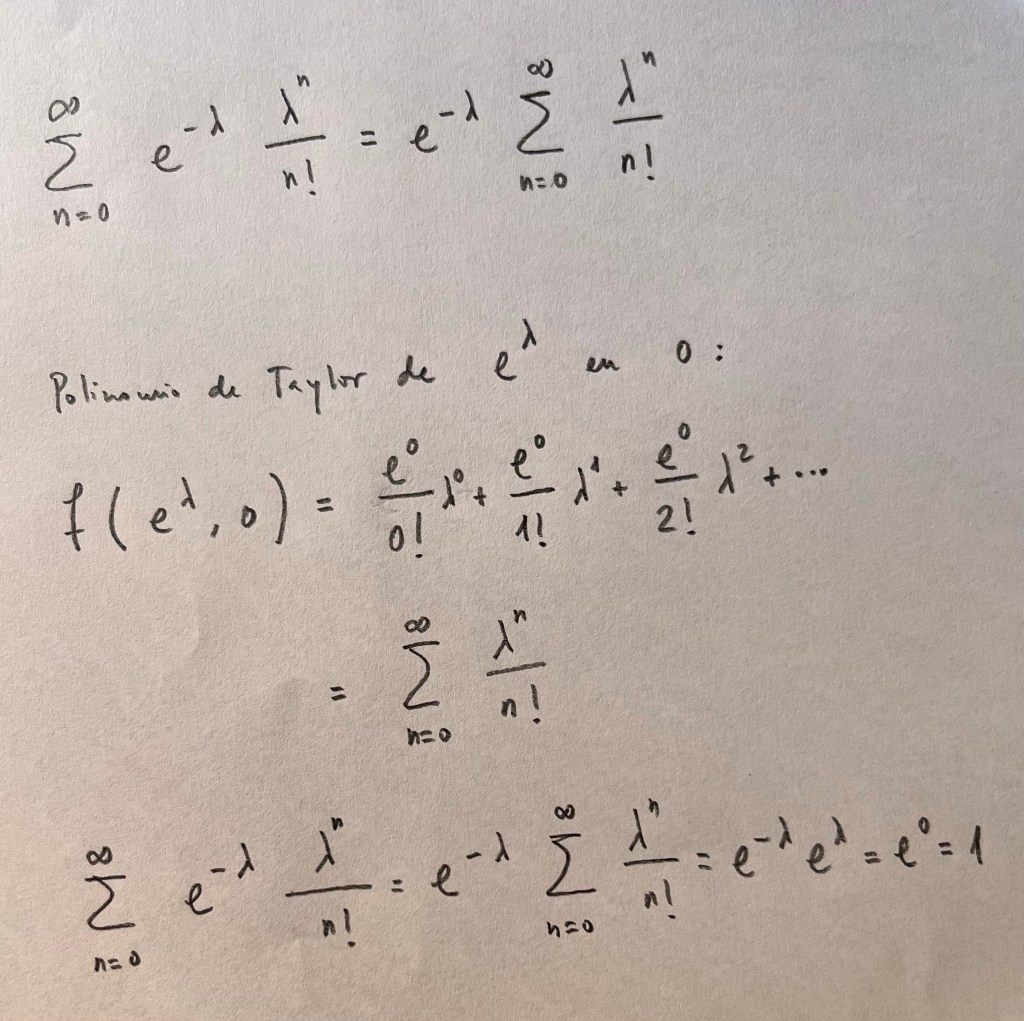 ∑_{n=0}^{∞} e^{-λ} λ^n/n! = e^{-λ} ∑_{n=0}^{∞} λ^n/n!
Polinomio de Taylor de e^λ en 0:
f(e^λ, 0) = e^0/0! λ^0 + e^0/1! λ^1 + e^0/2! λ^2 + ...
= ∑_{n=0}^{∞} λ^n/n!
∑_{n=0}^{∞} e^{-λ} λ^n/n! = e^{-λ} ∑_{n=0}^{∞} λ^n/n! = e^{-λ} e^λ = e^0 = 1